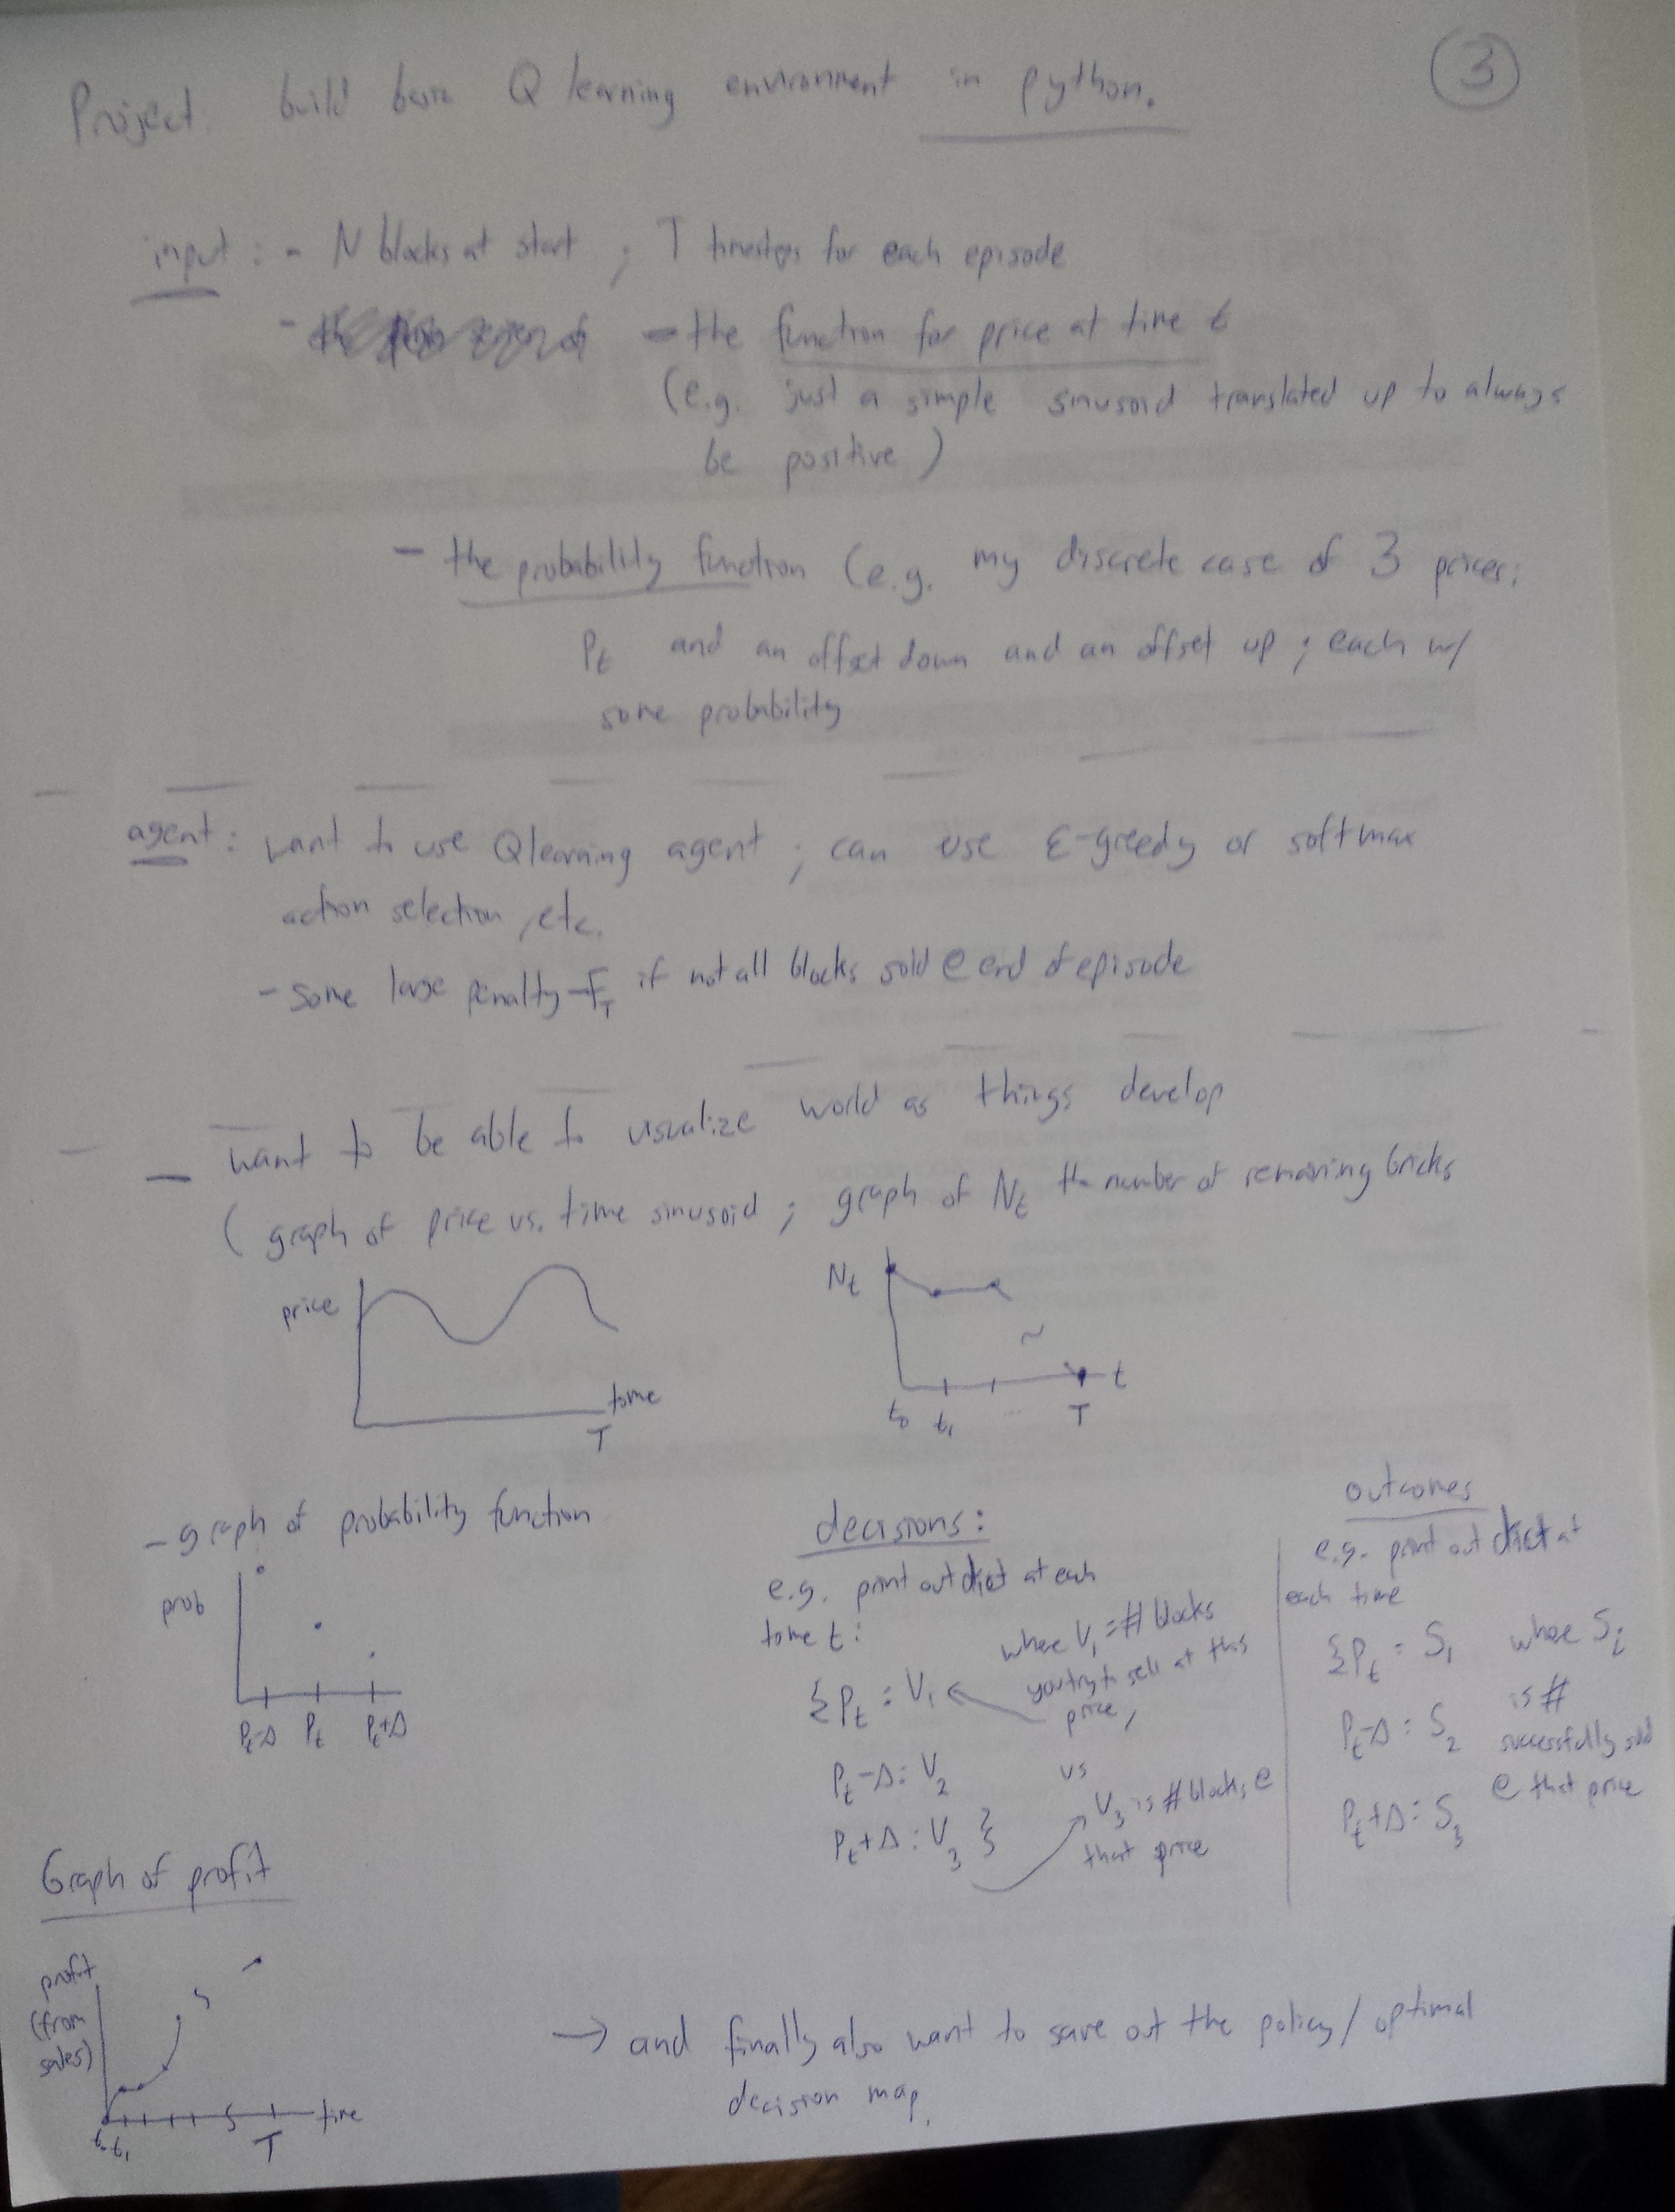 Project: build basic Q learning environment in python.
3
input: - N blocks at start ; T timesteps for each episode
- the function for price at time t
(e.g. just a simple sinusoid translated up to always
be positive)
- the probability function (e.g. my discrete case of 3 prices:
Pt and an offset down and an offset up ; each w/
some probability
agent: want to use Qlearning agent ; can use ε-greedy or softmax
action selection, etc.
- some large penalty -F_T if not all blocks sold @ end of episode
- want to be able to visualize world as things develop
(graph of price vs. time sinusoid ; graph of Nt the number of remaining bricks
price
time
T
Nt
t
t0 t1 ... T
- graph of probability function
prob
Pt-Δ Pt Pt+Δ
decisions:
e.g. print out dict at each
time t:
{Pt : V1
where V1 = # blocks
you try to sell at this
price,
vs
Pt-Δ : V2
Pt+Δ : V3 }
V3 is # blocks @
that price
outcomes
e.g. print out dict at
each time
{Pt : S1
Pt-Δ : S2
Pt+Δ : S3
where Si
is #
successfully sold
@ that price
Graph of profit
profit
(from
sales)
time
t0 t1 T
→ and finally also want to save out the policy/optimal
decision map.